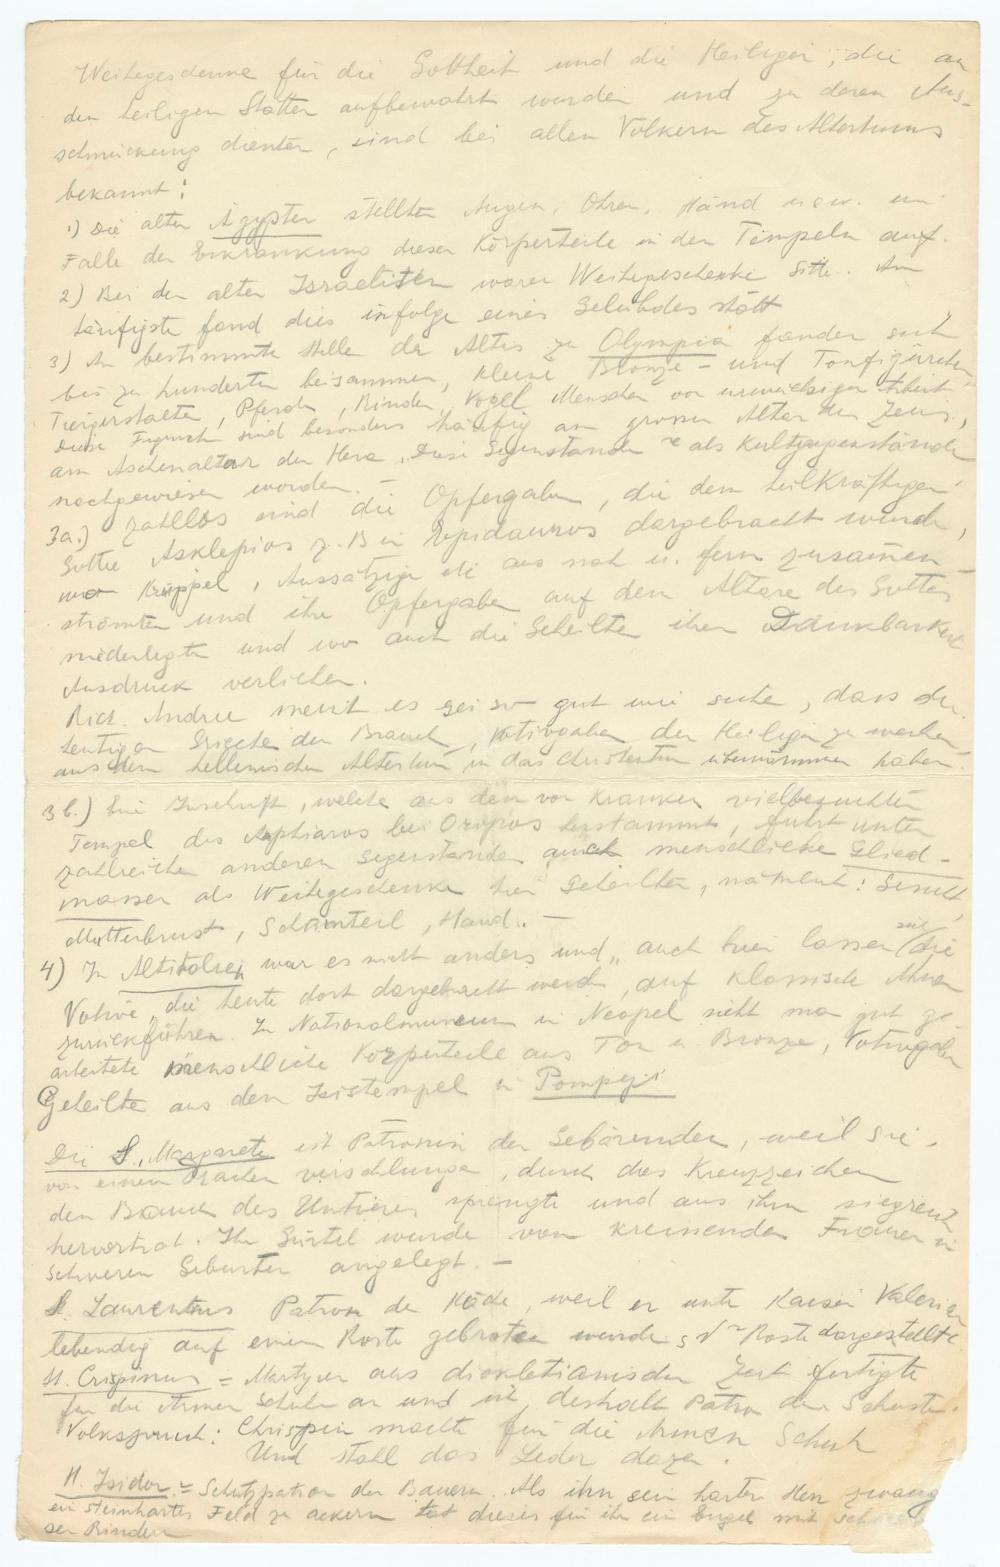 Weihegeschenke für die Gottheit und die Heiligen, die an
den heiligen Stätten aufbewahrt wurden und zu deren Aus-
schmückung dienten, sind bei allen Völkern des Altertums
bekannt:
1) Die alten Ägypter stellten Augen, Ohren, Händ usw. im
Falle der Erkrankung dieser Körperteile in den Tempeln auf.
2) Bei den alten Israeliten waren Weihegeschenke Sitte. Am
häufigste fand dies infolge eines Gelübdes statt
3) An bestimmte Stelle der Altis zu Olympia fanden sich
bis zu hunderten beisammen, kleine Bronze- und Tonfigürchen,
Tiergestalten, Pferde, Rinder, Vögel Menschen von urwüchsiger Arbeit.
Diese Figuren sind besonders häufig am grossen Altar des Zeus,
am Aschenaltar der Hera. Diese Gegenstände als Kultgegenstände
nachgewiesen worden. —
3a.) Zahllos sind die Opfergaben, die dem heilkräftigen
Gotte Asklepios z. B in Epidauros dargebracht wurden,
wo Krüppel, Aussätzige etc aus nah u. fern zusammen-
strömten und ihre Opfergaben auf dem Altare des Gottes
niederlegten und wo auch die Geheilten ihrer Dankbarkeit
Ausdruck verliehen.
Rich. Andree meint es sei so gut wie sicher, dass die
heutigen Griechen den Brauch, Votivgaben den Heiligen zu weihen,
aus dem hellenischen Altertum in das Christentum übernommen haben.
3b.) Eine Inschrift, welche aus dem von Kranken vielbesuchten
Tempel des Amphiaros bei Oropos herstammt, führt unter
zahlreichen anderen Gegenständen auch menschliche Glied-
massen als Weihegeschenke hier Geheilter, nämlich: Gesicht,
Mutterbrust, Schamteil, Hand. —
4) In Altitalien war es nicht anders und „auch hier lassen sich die
Votive, die heute dort dargebracht werden, auf klassische Ahnen
zurückführen. Im Nationalmuseum in Neapel sieht man gut ge
arbeitete menschliche Körperteile aus Ton u. Bronze, Votivgaben
Geheilter aus dem Isistempel in Pompeji
Die H. Margarete ist Patronin der Gebärenden, weil sie
von einem Drachen verschlungen, durch das Kreuzzeichen
den Bauch des Untieres sprengte und aus ihm siegreich
hervortrat. Ihr Gürtel wurde von kreissenden Frauen in
schweren Geburten angelegt. —
H. Laurentius Patron der Köche, weil er unter Kaiser Valerian
lebendig auf einem Roste gebraten wurde Roste dargestellt
H. Crispinus = Martyrer aus diokletianischer Zeit fertigte
für die Armen Schuhe an und ist deshalb Patron der Schuster.
Volksspruch: Chrispin machte für die Armen Schuh
Und stahl das Leder dazu.
H. Isidor = Schutzpatron der Bauern. Als ihn sein harter Herr zwang
ein steinhartes Feld zu ackern tat dieses für ihn ein Engel mit
Rindern